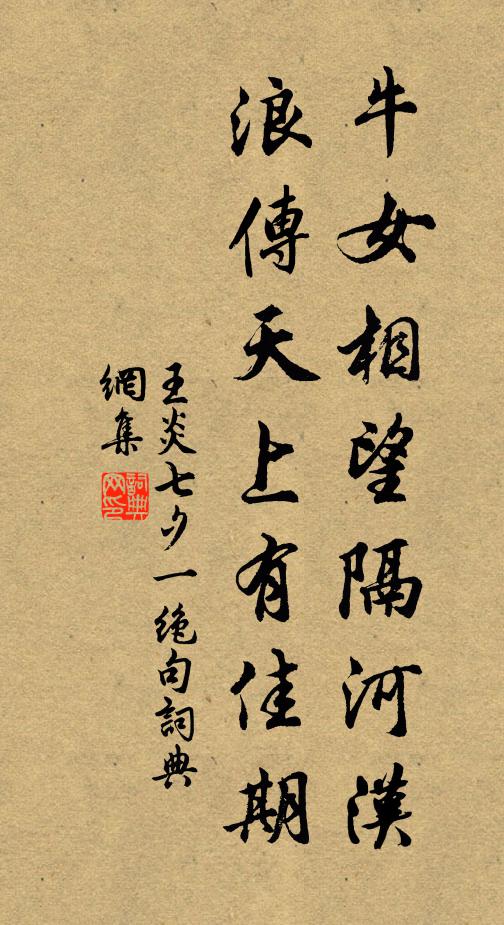 牛女相望隔河漢
浪傳天上有佳期
王炎七夕一絶句詞典
網集
詞典
网印